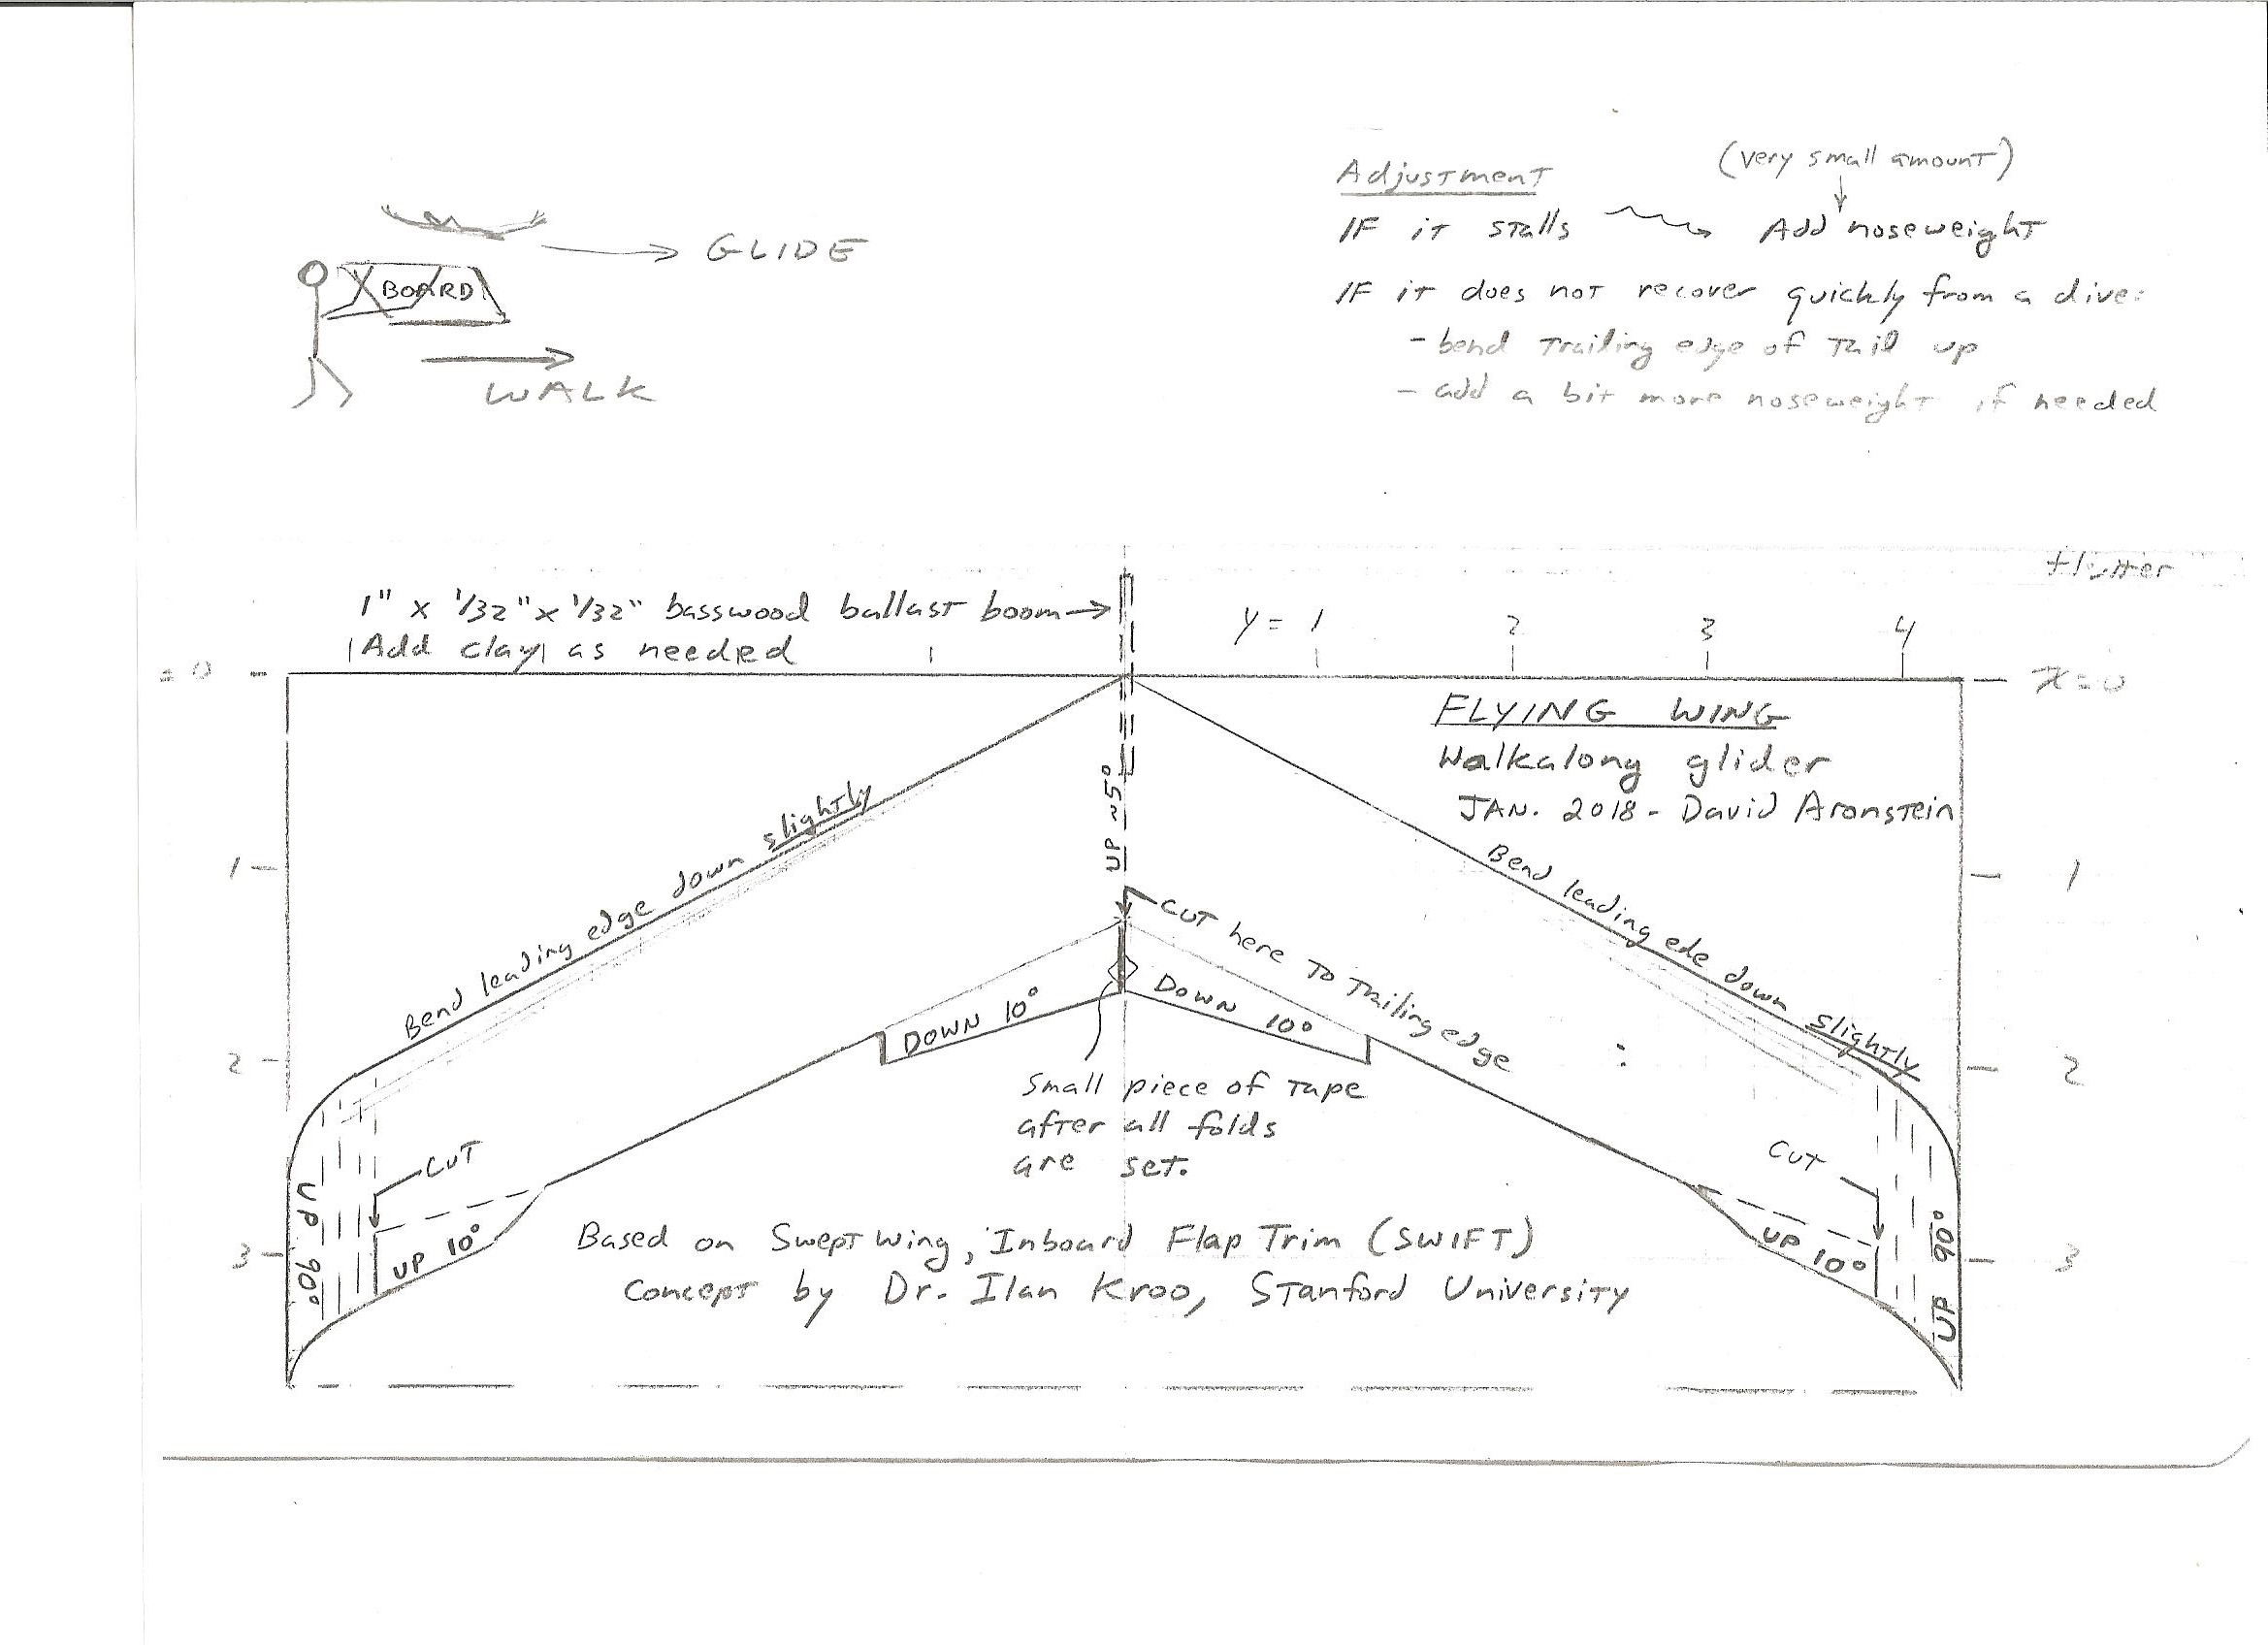 Adjustment
(very small amount)
IF it stalls Add noseweight
IF it does not recover quickly from a dive:
- bend trailing edge of tail up
- add a bit more noseweight if needed
GLIDE
BOARD
WALK
flutter
1" x 1/32" x 1/32" basswood ballast boom→
Add clay as needed
y = 1 2 3 4
= 0
x=0
FLYING WING
Walkalong glider
JAN. 2018 - David Aronstein
UP ~5°
1
2
3
1
2
3
Bend leading edge down slightly
Bend leading ede down slightly
CUT here to trailing edge
DOWN 10°
DOWN 10°
Small piece of tape
after all folds
are set.
CUT
CUT
UP 90°
UP 10°
UP 10°
UP 90°
Based on Swept Wing, Inboard Flap Trim (SWIFT)
Concept by Dr. Ilan Kroo, Stanford University